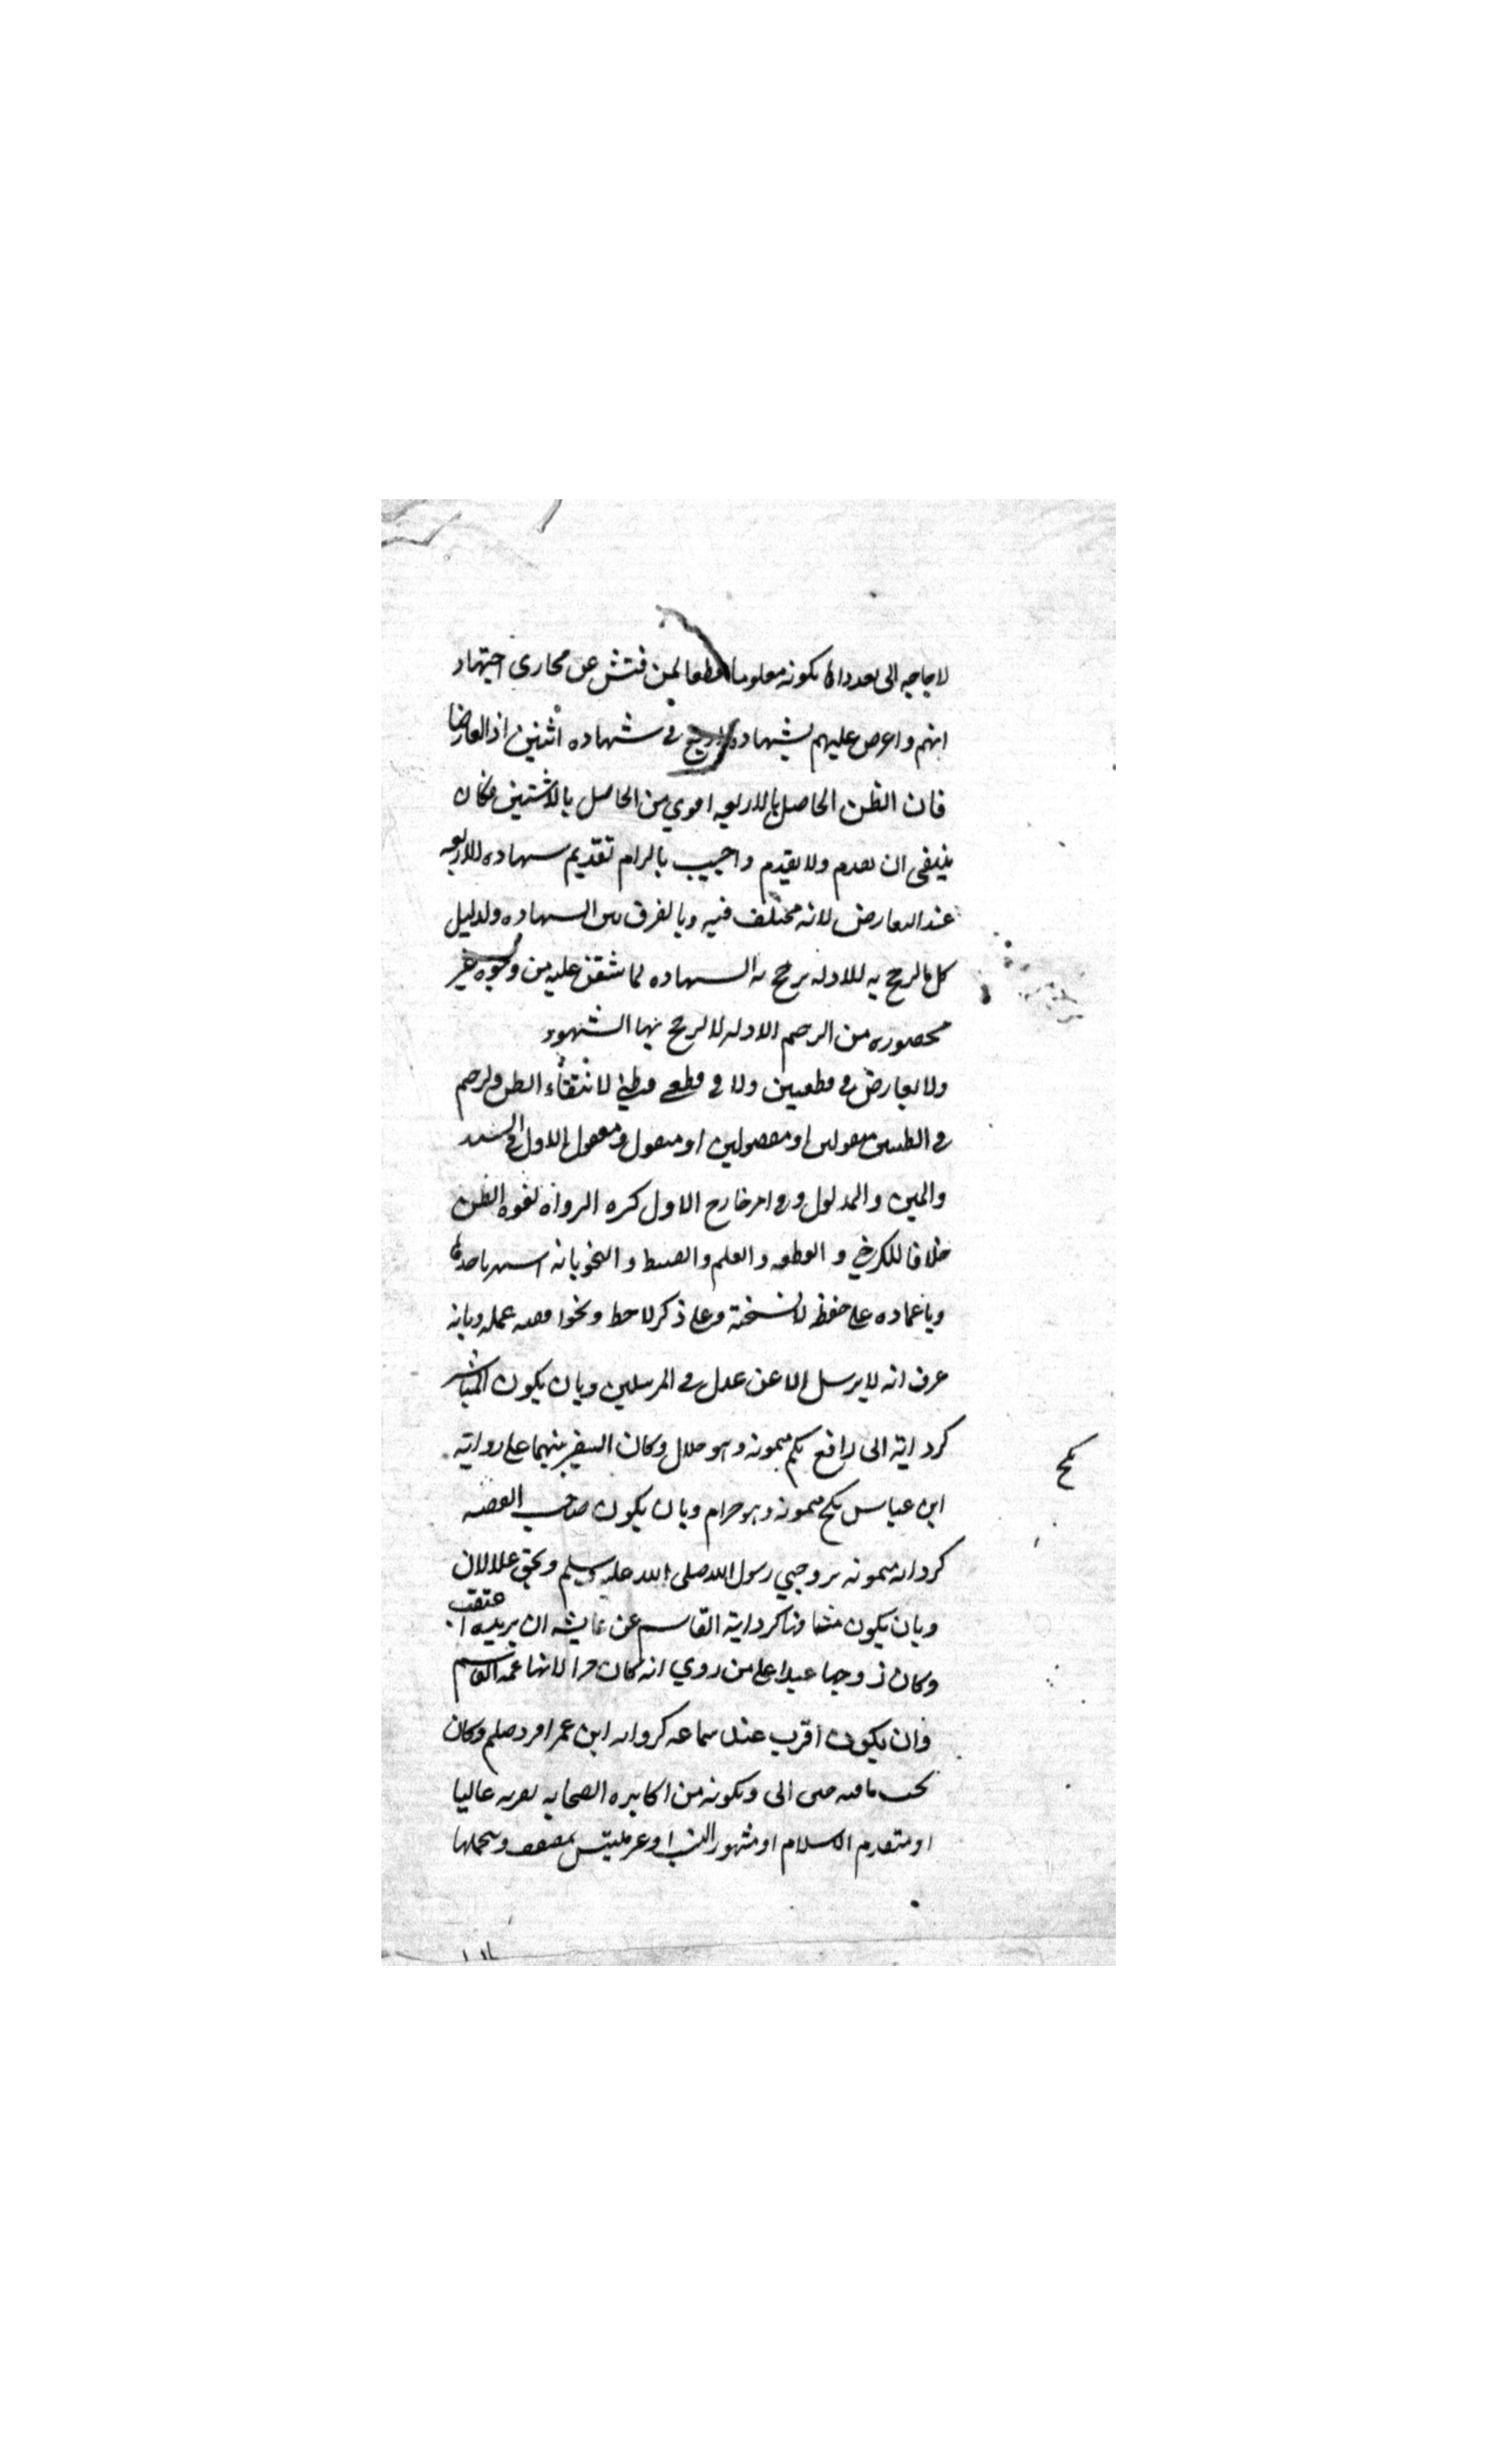 لا حاجه الى تعدادها لكونه معلوما قطعا لمن فتش عن مجارى اجتهاد
اتهم واعرض عليهم بشهاده اربع فى شهاده اثنين اذا تعارضا
فان الظن الحاصل بالاربعه اقوي من الحاصل بالاثنين فكان
ينبغى ان يقدم ولا يقدم واجيب بالزام تقديم شهاده الاربعه
عند التعارض لانه مختلف فيه وبالفرق بين الشهاده والدليل
كل ما يرجح به الادله يرجح به الشهاده لما من وجوه غير
محصوره من الادله لا يرجح بها الشهود
ولا تعارض فى قطعيين ولا فى قطعى وظنى لانتقاء الظن والترجيح
فى الظنيين منقولين او معقولين او منقول ومعقول الاول فى السند
والمتن والمدلول وفى امر خارج الاول كثره الرواه لقوه الظن
خلافا للكرخي و الفطنه والعلم والضبط والنحو بانه اشهر باحدها
وباعتماده على حفظ لا نسخته وعلى ذكر لا خط ونحو موافقه عمله وبانه
عرف انه لا يرسل الا عن عدل فى المرسلين وبان يكون المباشر
كرواية ابى رافع نكح ميمونه وهو حلال وكان السفير بينهما على رواية
ابن عباس نكح ميمونه وهو حرام وبان يكون صاحب القصه
كروايه ميمونه تزوجني رسول الله صلى الله عليه وسلم ونحن حلالان
وبان يكون مشافها كرواية القاسم عن عايشه ان بريره اعتقت
وكان زوجها عبدا على من روي انه كان حرا لانها عمه القاسم
وان يكون اقرب عند سماعه كروايه ابن عمر افرد صلعم وكان
تحت ناقته حين لبى وبكونه من اكابر الصحابه لقربه غالبا
او متقدم الاسلام او مشهور النسب او غير ملتبس بمضعف وبتحملها
نكح